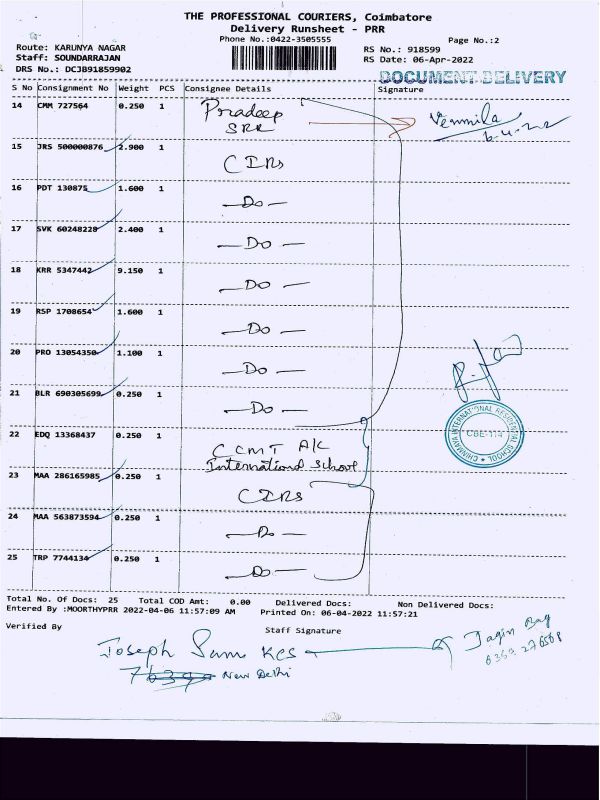 THE PROFESSIONAL COURIERS, Coimbatore
Delivery Runsheet - PRR
Phone No.:0422-3505555
Page No.:2
Route: KARUNYA NAGAR
RS No.: 918599
Staff: SOUNDARRAJAN
RS Date: 06-Apr-2022
DRS No.: DCJB91859902
DOCUMENT DELIVERY
S No Consignment No Weight PCS Consignee Details Signature
14 CMM 727564 0.250 1 Pradeep
SRK
Vennila
6-4-22
15 JRS 500000876 2.900 1 CIRs
16 PDT 130875 1.600 1 -Do-
17 SVK 60248228 2.400 1 -Do-
18 KRR 5347442 9.150 1 -Do-
19 RSP 1708654 1.600 1 -Do-
20 PRO 13054350 1.100 1 -Do-
21 BLR 690305699 0.250 1 -Do-
CHINMAYA INTERNATIONAL RESIDENTIAL SCHOOL
CBE-114
22 EDQ 13368437 0.250 1 CCMT A/C
International School
23 MAA 286165985 0.250 1 CIRs
24 MAA 563873594 0.250 1 -Do-
25 TRP 7744134 0.250 1 -Do-
Total No. Of Docs: 25 Total COD Amt: 0.00 Delivered Docs: Non Delivered Docs:
Entered By :MOORTHYPRR 2022-04-06 11:57:09 AM Printed On: 06-04-2022 11:57:21
Verified By
Staff Signature
Joseph Sam KCS
New Delhi